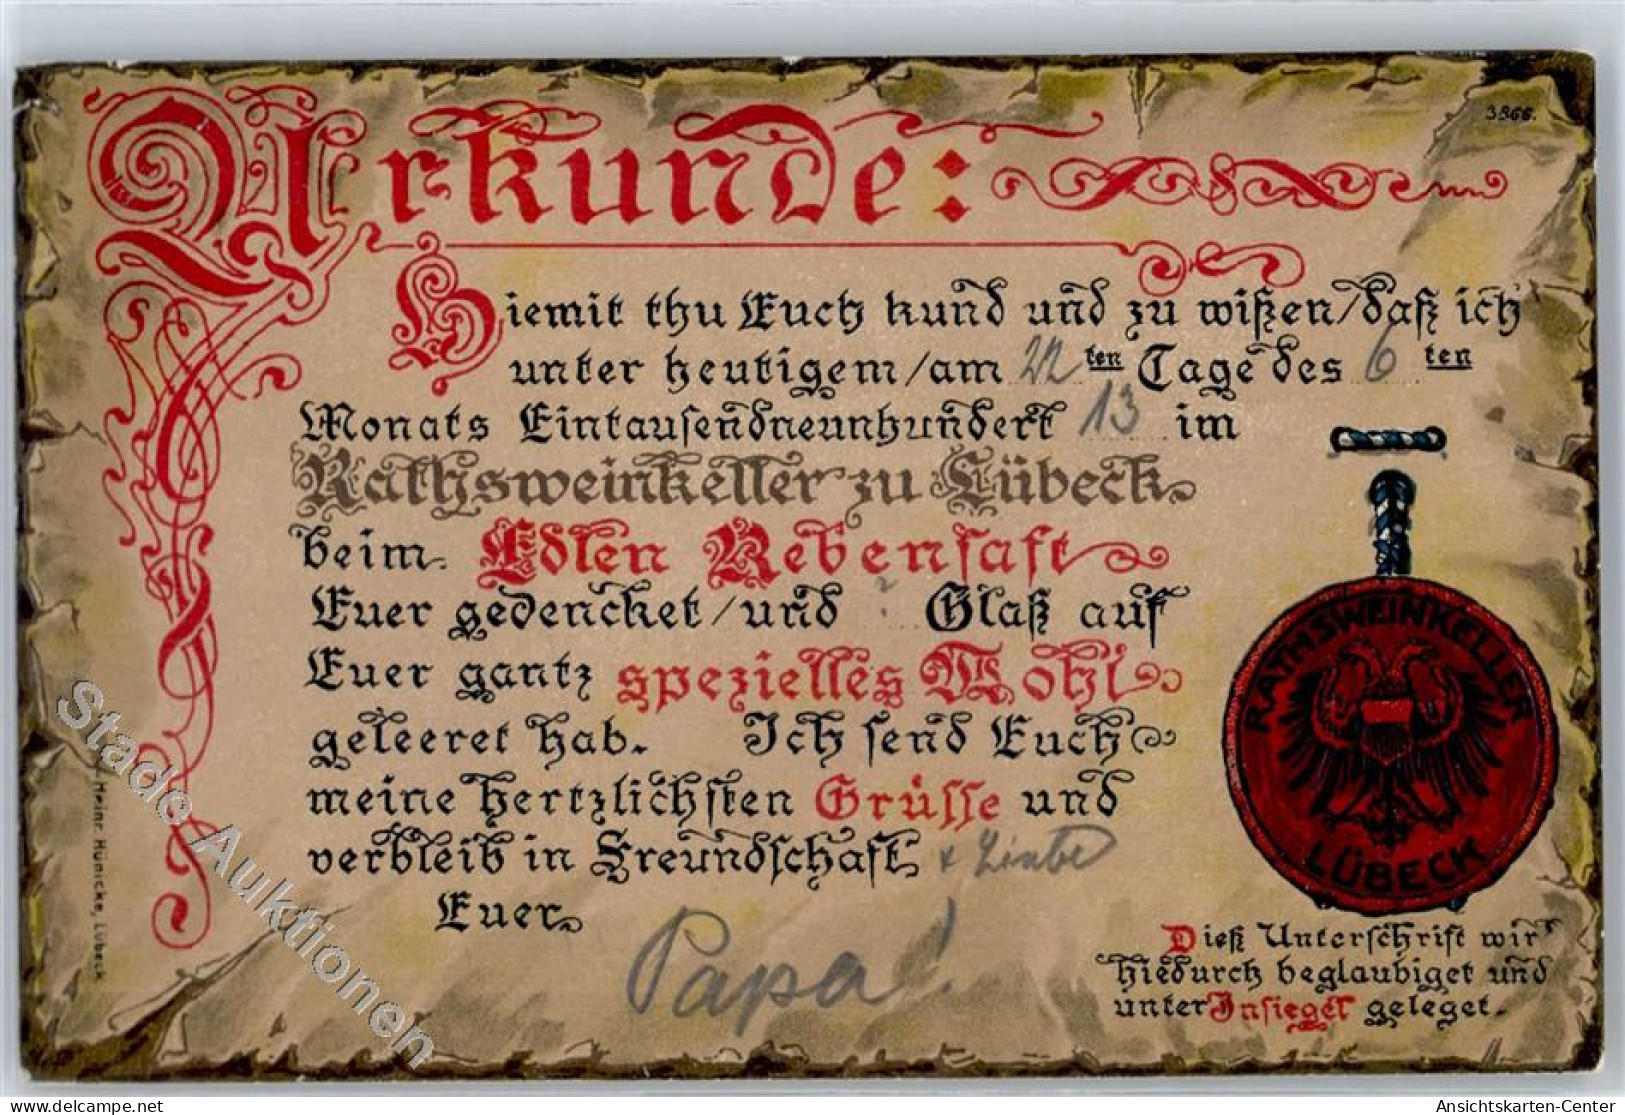 3866.
Urkunde:
Hiemit thu Euch kund und zu wißen/daß ich
unter heutigem/am 22ten Tage des 6ten
Monats Eintausendneunhundert 13 im
Rathsweinkeller zu Lübeck
beim Edlen Rebensaft
Euer gedencket/und ? Glaß auf
Euer gantz spezielles Wohl
geleeret hab. Ich send Euch
meine hertzlichsten Grüsse und
verbleib in Freundschaft + Liebe
Euer
Papa!
RATHSWEINKELLER
LÜBECK
Dieß Unterschrift wird
hiedurch beglaubiget und
unter Insiegel geleget.
Heinr. Hünicke, Lübeck
Stade Auktionen
delcampe.net
Ansichtskarten-Center